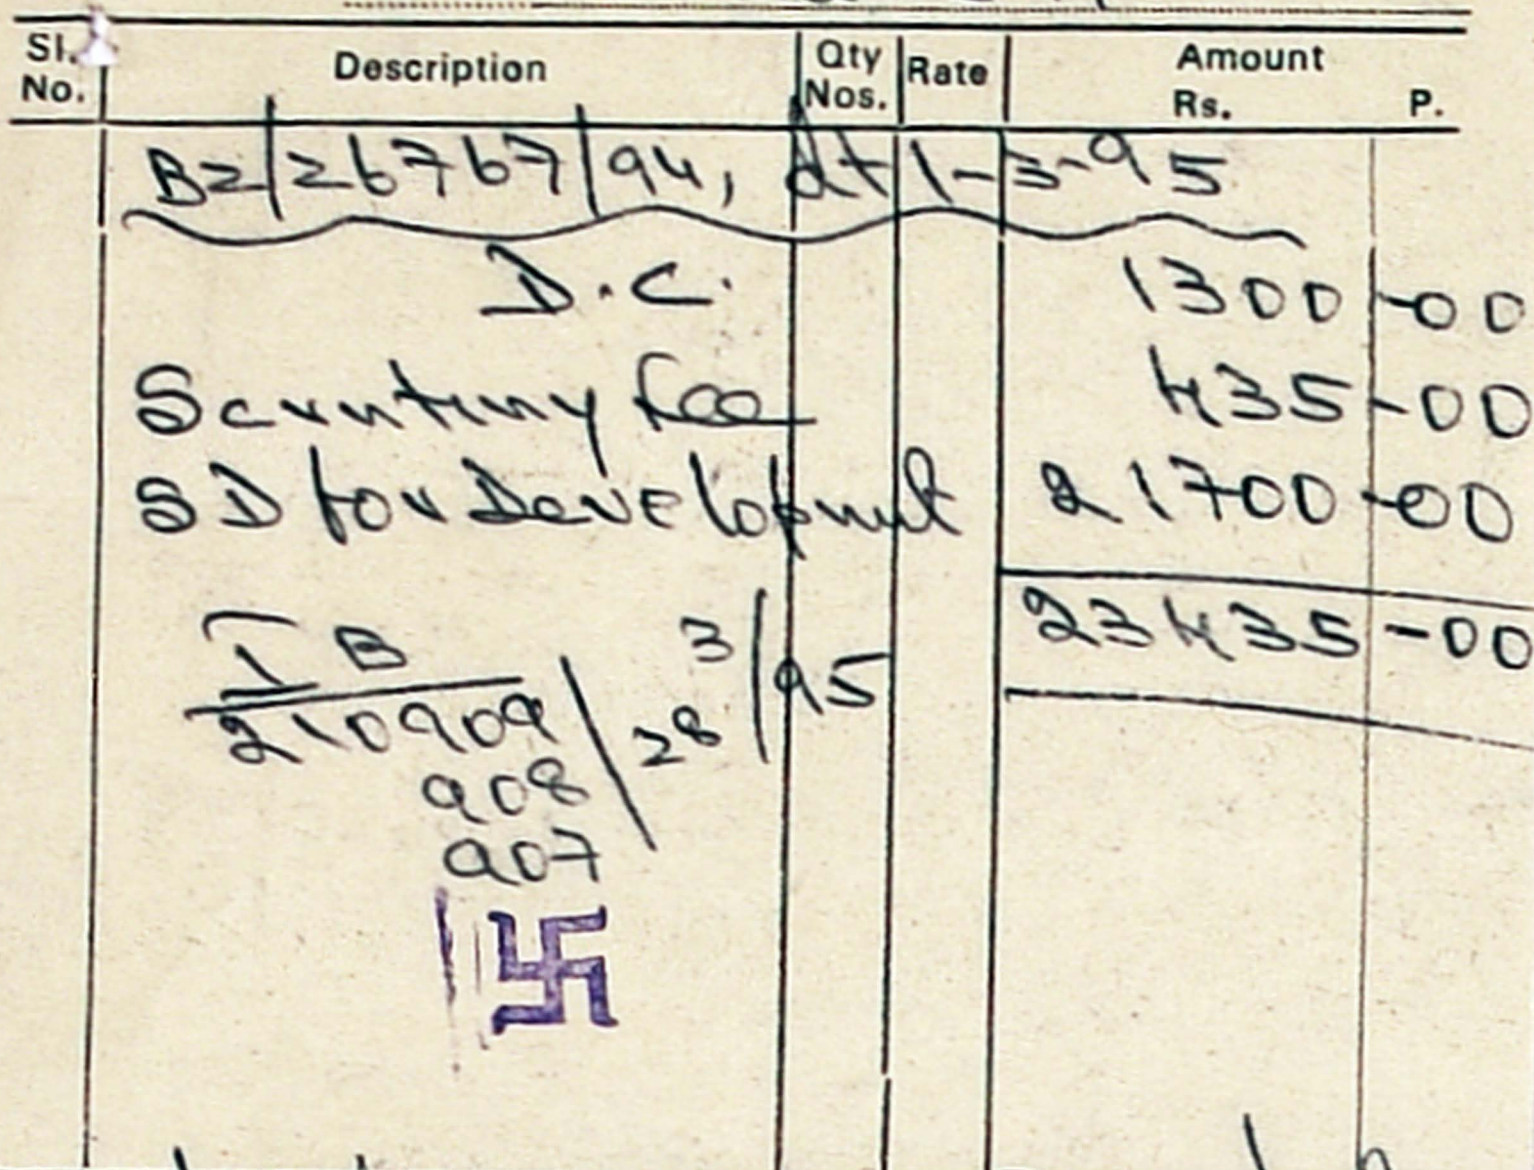 Sl. No. Description Qty Nos. Rate Amount Rs. P.
B2/26767/94, dt 1-3-95
D.C. 1300-00
Scrutiny fee 435-00
SD for Development 21700-00
23435-00
IB
210909 / 28 3/95
908
907